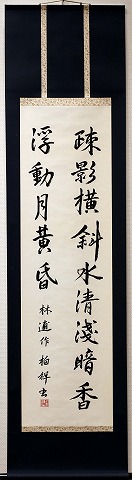 疎影橫斜水清淺暗香
浮動月黃昏
林逋作 柏舟書